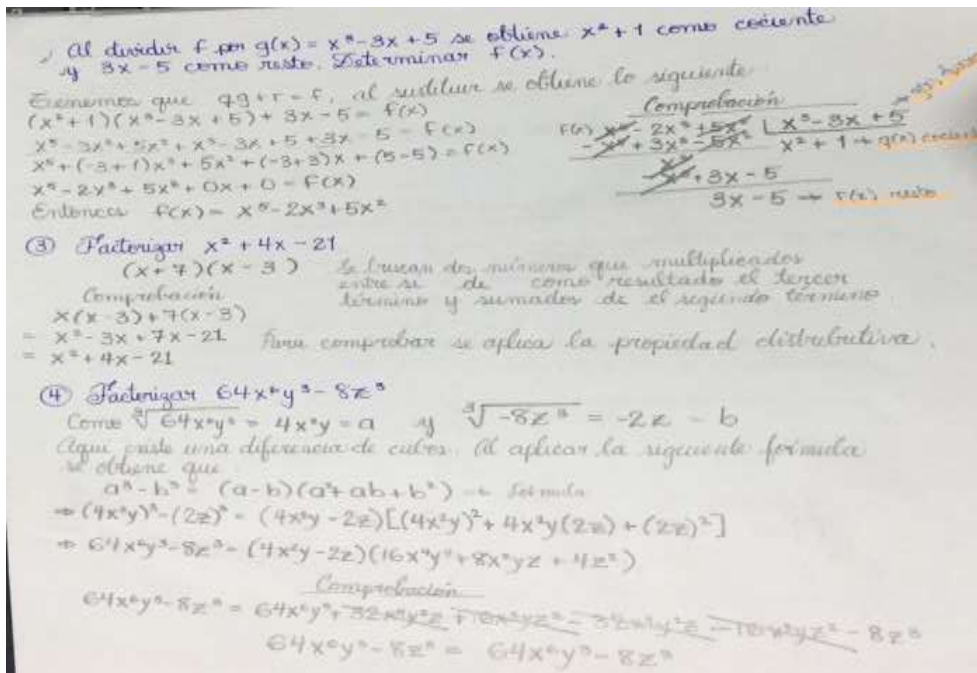 Al dividir f por g(x) = x³ - 3x + 5 se obtiene x² + 1 como cociente
y 3x - 5 como resto. Determinar f(x).
que qg + r = f, al sustituir se obtiene lo siguiente
(x² + 1)(x³ - 3x + 5) + 3x - 5 = f(x)
x⁵ - 3x³ + 5x² + x³ - 3x + 5 + 3x - 5 = f(x)
x⁵ + (-3 + 1)x³ + 5x² + (-3+3)x + (5-5) = f(x)
x⁵ - 2x³ + 5x² + 0x + 0 = f(x)
Entonces f(x) = x⁵ - 2x³ + 5x²
Comprobación
f(x) x⁵ - 2x³ + 5x² | x³ - 3x + 5
- x⁵ + 3x³ - 5x² x² + 1 → q(x) cociente
x³
- x³ + 3x - 5
3x - 5 → r(x) resto
③ Factorizar x² + 4x - 21
(x + 7)(x - 3) Se buscan dos números que multiplicados
entre si de como resultado el tercer
término y sumados de el segundo término.
Comprobación
x(x - 3) + 7(x - 3)
= x² - 3x + 7x - 21 Para comprobar se aplica la propiedad distributiva.
= x² + 4x - 21
④ Factorizar 64x⁶y³ - 8z³
Como ∛64x⁶y³ = 4x²y = a y ∛-8z³ = -2z = b
Aqui existe una diferencia de cubos. Al aplicar la siguiente formula
se obtiene que
a³ - b³ = (a - b)(a² + ab + b²) → formula
⇒ (4x²y)³ - (2z)³ = (4x²y - 2z)[(4x²y)² + 4x²y(2z) + (2z)²]
⇒ 64x⁶y³ - 8z³ = (4x²y - 2z)(16x⁴y² + 8x²yz + 4z²)
Comprobación
64x⁶y³ - 8z³ = 64x⁶y³ + 32x⁴y²z + 16x²yz² - 32x⁴y²z - 16x²yz² - 8z³
64x⁶y³ - 8z³ = 64x⁶y³ - 8z³